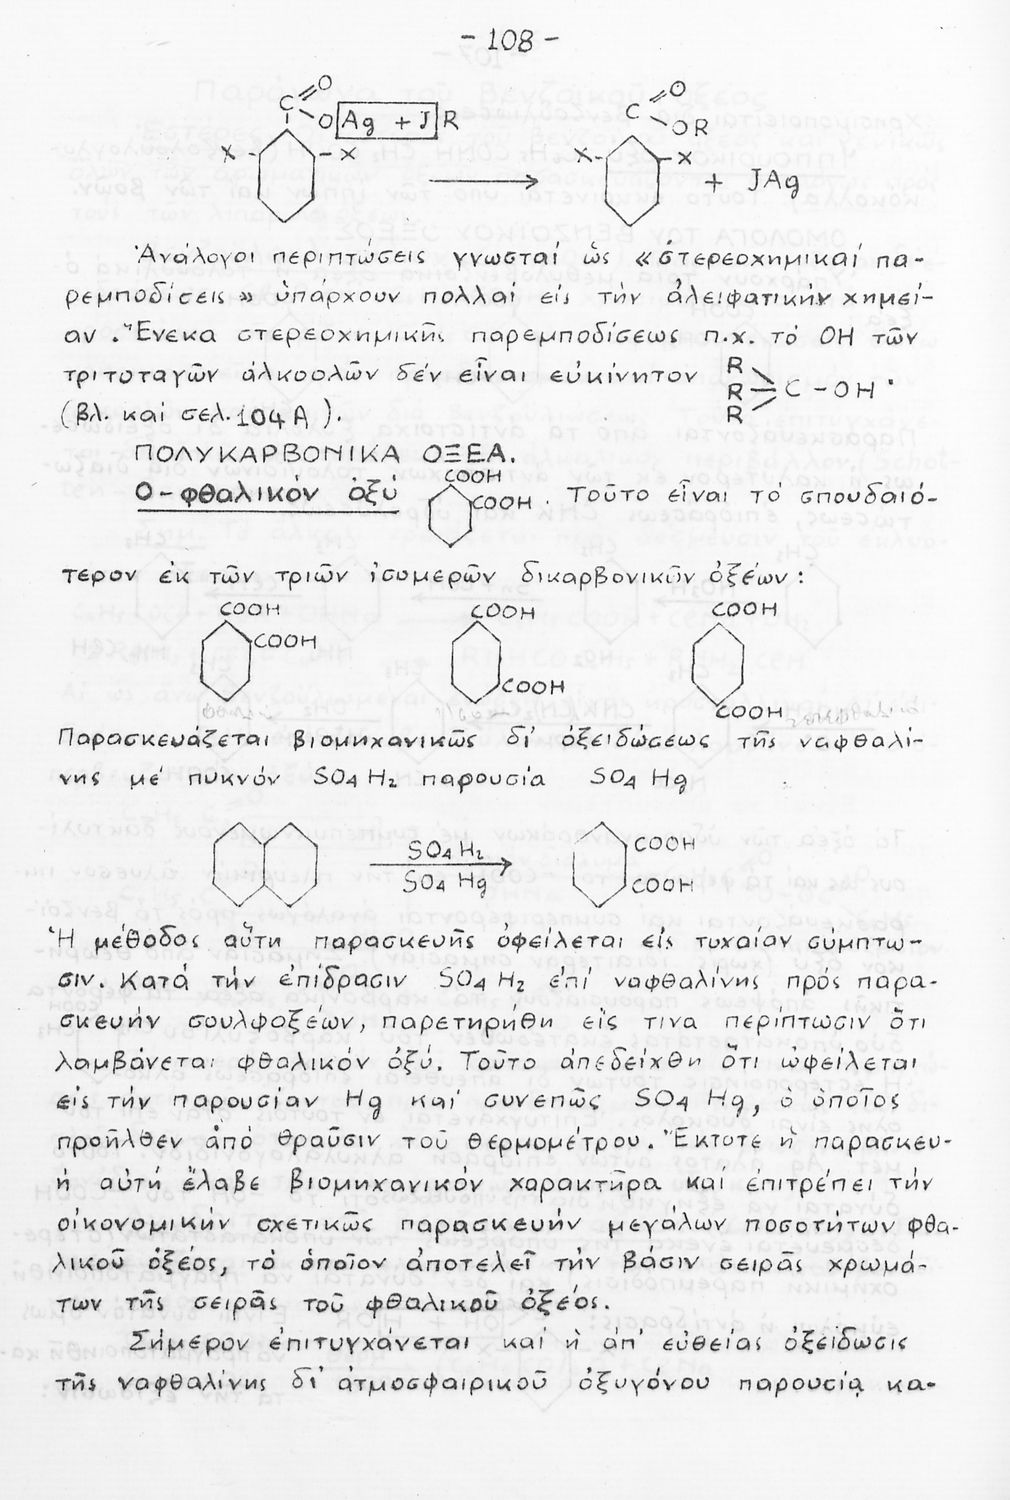 - 108 -
C O
O Ag + J R
X - - X
C O
O R
X - - X
+ JAg
Ἀνάλογοι περιπτώσεις γνωσταί ὡς «στερεοχημικαί πα-
ρεμποδίσεις» ὑπάρχουν πολλαί εἰς τήν ἀλειφατικήν χημεί-
αν. Ἕνεκα στερεοχημικῆς παρεμποδίσεως π.χ. τό ΟΗ τῶν
τριτοταγῶν ἀλκοολῶν δέν εἶναι εὐκίνητον R R R C - OH .
(βλ. καί σελ. 104 Α).
ΠΟΛΥΚΑΡΒΟΝΙΚΑ ΟΞΕΑ.
Ο-φθαλικόν ὀξύ COOH COOH . Τοῦτο εἶναι τό σπουδαιό-
τερον ἐκ τῶν τριῶν ἰσομερῶν δικαρβονικῶν ὀξέων:
COOH COOH COOH
COOH
COOH
COOH
Παρασκευάζεται βιομηχανικῶς δι' ὀξειδώσεως τῆς ναφθαλί-
νης μέ πυκνόν SO4H2 παρουσία SO4 Hg
SO4H2
SO4 Hg
COOH
COOH
Ἡ μέθοδος αὕτη παρασκευῆς ὀφείλεται εἰς τυχαίαν σύμπτω-
σιν. Κατά τήν ἐπίδρασιν SO4H2 ἐπί ναφθαλίνης πρός παρα-
σκευήν σουλφοξέων, παρετηρήθη εἰς τινα περίπτωσιν ὅτι
λαμβάνεται φθαλικόν ὀξύ. Τοῦτο ἀπεδείχθη ὅτι ὠφείλεται
εἰς τήν παρουσίαν Hg καί συνεπῶς SO4 Hg, ὁ ὁποῖος
προῆλθεν ἀπό θραῦσιν τοῦ θερμομέτρου. Ἔκτοτε ἡ παρασκευ-
ή αὐτή ἔλαβε βιομηχανικόν χαρακτῆρα καί ἐπιτρέπει τήν
οἰκονομικήν σχετικῶς παρασκευήν μεγάλων ποσοτήτων φθα-
λικοῦ ὀξέος, τό ὁποῖον ἀποτελεῖ τήν βάσιν σειρᾶς χρωμά-
των τῆς σειρᾶς τοῦ φθαλικοῦ ὀξέος.
Σήμερον ἐπιτυγχάνεται καί ἡ ἀπ' εὐθείας ὀξείδωσις
τῆς ναφθαλίνης δι' ἀτμοσφαιρικοῦ ὀξυγόνου παρουσίᾳ κα-